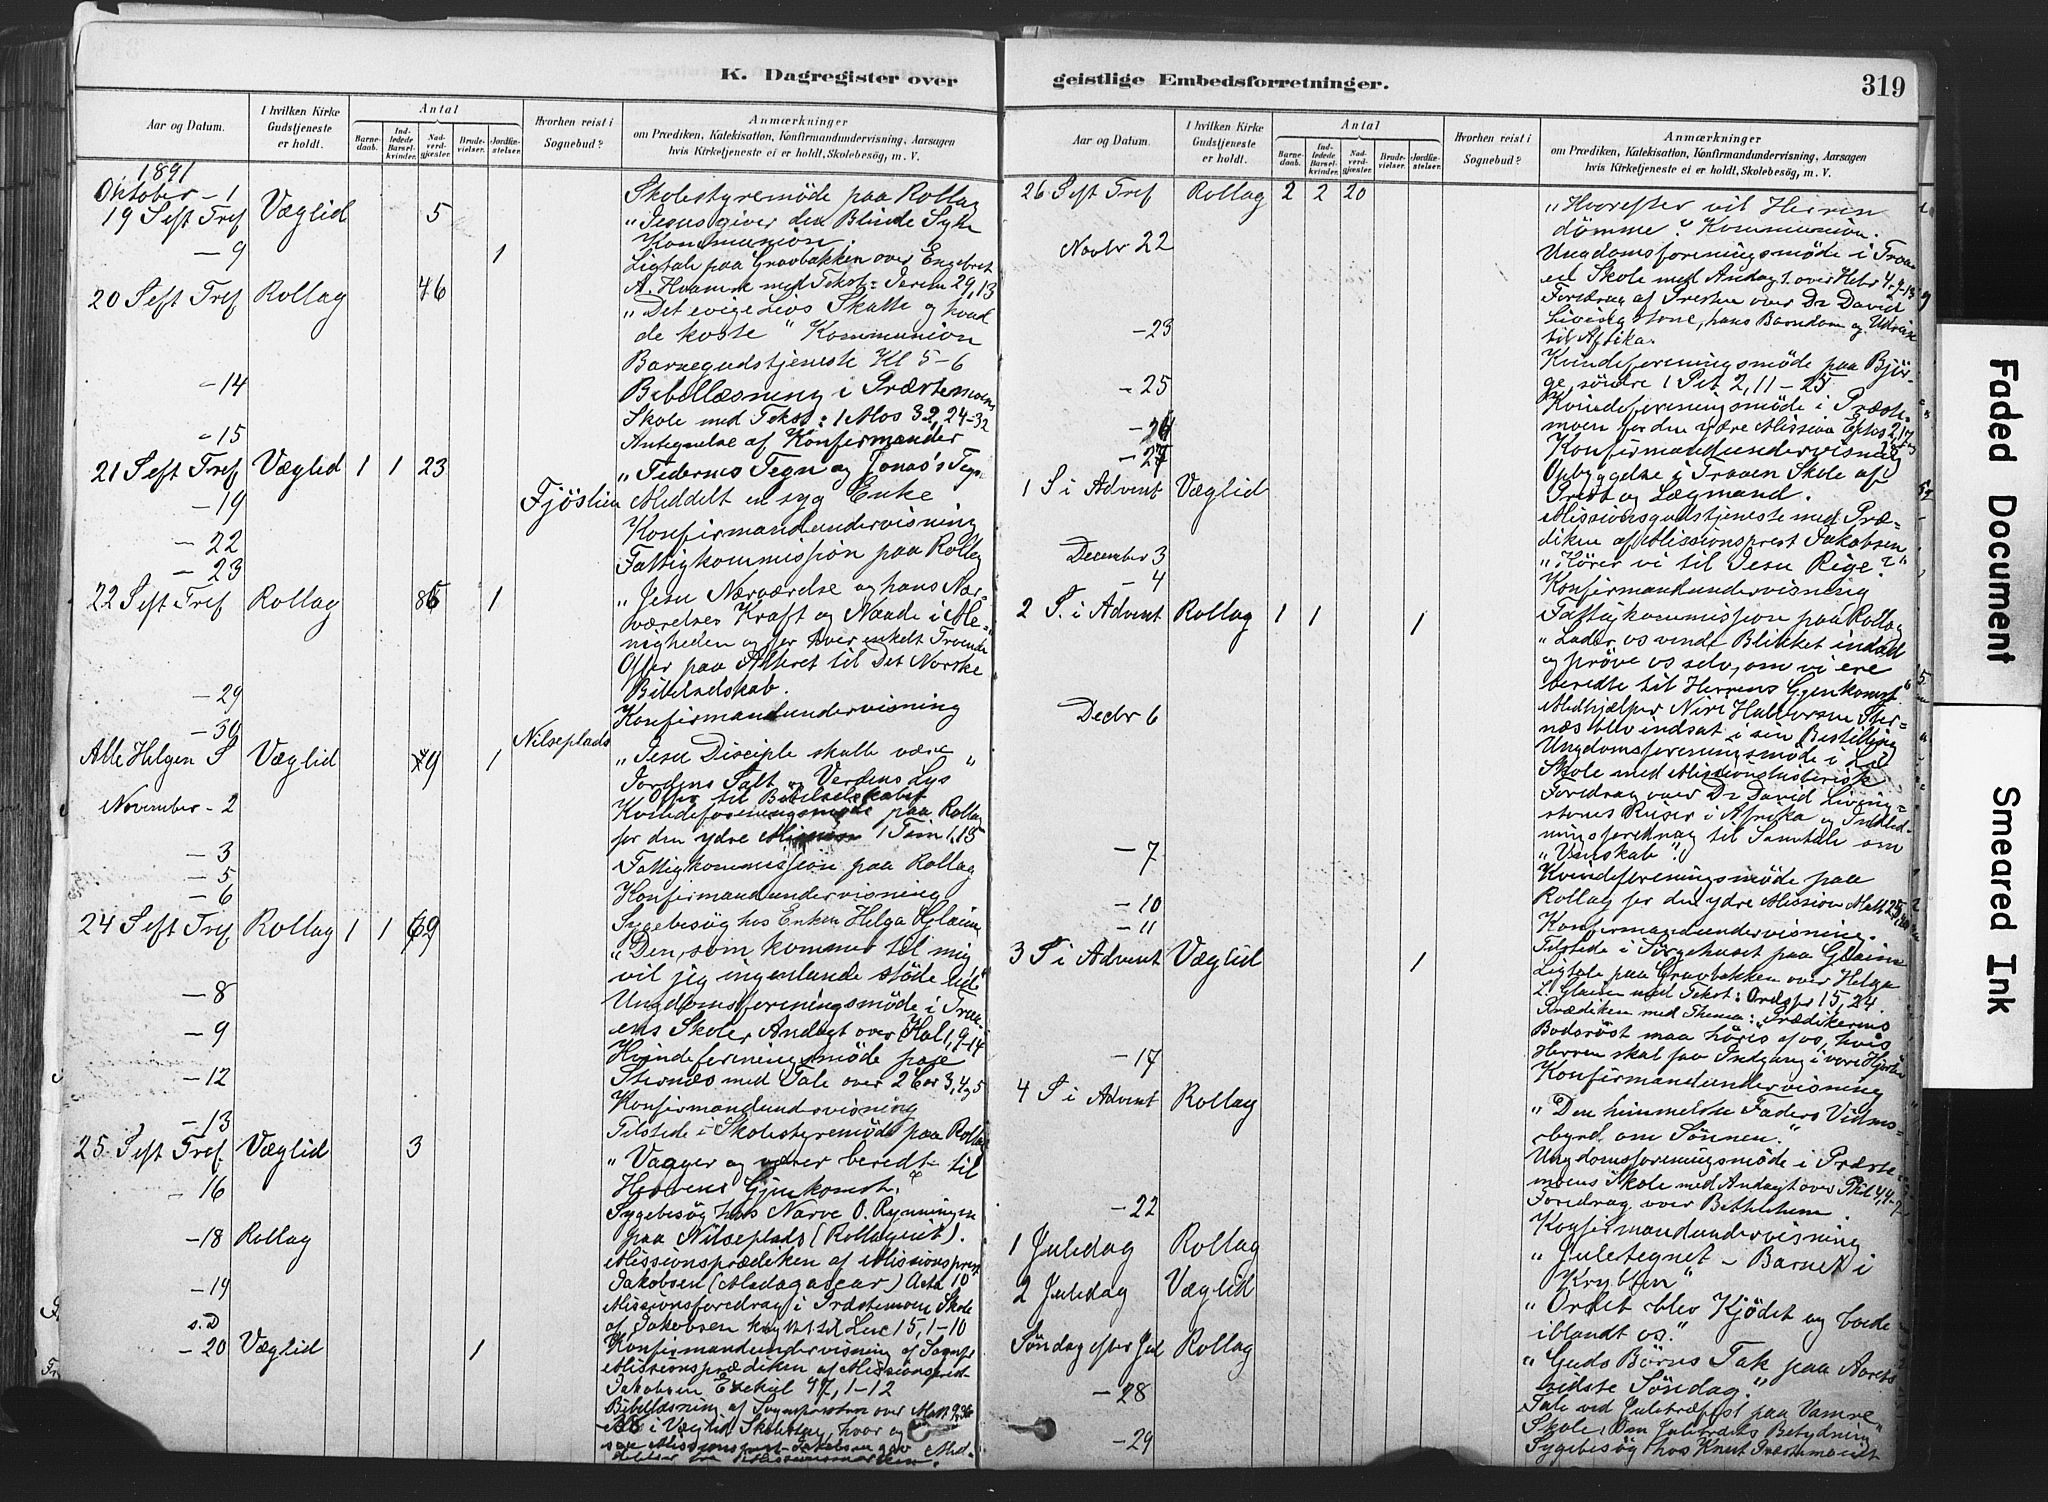 K. Dagregister over
Aar og Datum.
I hvilken Kirke Gudstjeneste er holdt.
Antal
Barnedaab.
Indledede Barselkvinder.
Nadverdgjester
Brudevielser.
Jordfæstelser.
Hvorhen reist i Sognebud?
Anmærkninger
om Prædiken, Katekisation, Konfirmandundervisning, Aarsagen
hvis Kirketjeneste ei er holdt, Skolebesøg, m. V.
1891
Oktober - 1 Skolestyremøde paa Rollag
19 S eft Tref Væglid 5 „Jesus giver den Blinde Syn
Kommunion.
- 9 1 Ligtale paa Gravbakken over Engebret
A. Hvamre med Tekst: Jerem 29,13
20 S eft Tref Rollag 46 „Det evige Livs Skatte og hvad
de koste" Kommunion
Barnegudstjeneste Kl 5-6
- 14 Bibellæsning i Præstemoens
Skole med Tekst: 1 Mos 32, 24-32
- 15 Antegnelse af Konfirmander
21 S eft Tref Væglid 1 1 23 „Tidernes Tegn og Jonas's Tegn
- 19 Fjöslien Meddelt en syg Enke
- 22 Konfirmandundervisning
- 23 Fattigkommission paa Rollag
22 S eft Tref Rollag 86 1 „Jesu Nærværelse og hans Nær-
værelses Kraft og Naade i Me-
nigheden og for hver enkelt Troende
Offer paa Alteret til Det Norske
Bibelselskab.
- 29 Konfirmandundervisning
- 30 Nilseplads
Alle Helgen S Væglid 49 1 „Jesu Disciple skulle være
Jordens Salt og Verdens Lys"
Offer til Bibelselskabet
November - 2 Kvindeforeningsmøde paa Rollag
for den ydre Mission 1 Tim 1,15
- 3 Fattigkommission paa Rollag
- 5 Konfirmandundervisning
- 6 Sygebesøg hos Enken Helga Glaim
24 S eft Tref Rollag 1 1 69 „Den, som kommer til mig
vil jeg ingenlunde støde ud"
- 8 Ungdomsforeningsmøde i Traa-
ens Skole, Andagt over Kol 1, 9-14
- 9 Kvindeforeningsmøde paa
Sternes med Tale over 2 Cor 3, 4, 5
- 12 Konfirmandundervisning
- 13 Tilstede i Skolestyremøde paa Rollag
25 S eft Tref Væglid 3 „Vaager og værer beredt til
Herrens Gjenkomst.
- 16 Sygebesøg hos Narve O. Rynningen
paa Nilseplads (Rollagseiet).
- 18 Rollag Missionsprædiken af Missionsprest
Jakobsen (Madagascar) Acta 10
- 19 Missionsforedrag i Præstemoens Skole
af Jakobsen Luc 15, 1-10
s. D Konfirmandundervisning af Sognepr
- 20 Væglid 1 Missionsprædiken af Missionsprest
Jakobsen Ezekiel 47, 1-12
Bibellæsning af Sognepresten over Matt 9, 36
38 i Væglid Skolestue, hvor og
saa Missionsprest Jakobsen gav Med-
delelser fra Missionsmarken.
geistlige Embedsforretninger.
319
Aar og Datum.
I hvilken Kirke Gudstjeneste er holdt.
Antal
Barnedaab.
Indledede Barselkvinder.
Nadverdgjæster
Brudevielser.
Jordfæstelser.
Hvorhen reist i Sognebud?
Anmærkninger
om Prædiken, Katekisation, Konfirmandundervisning, Aarsagen
hvis Kirketjeneste ei er holdt, Skolebesøg, m. V.
26 S eft Tref Rollag 2 2 20 „Hvorefter vil Herren
dömme." Kommunion.
Novbr 22 Ungdomsforeningsmøde i Traa-
en Skole med Andagt over Hebr 4, 9-13
Foredrag af Presten over Dr David
Livingstone, hans Barndom og Udreise
til Afrika.
- 23 Kvindeforeningsmøde paa Björ-
ge, søndre 1 Pet 2, 11-25
- 25 Kvindeforeningsmøde i Præste-
moen for den ydre Mission Efes 2,
- 26 Konfirmandundervisning
- 27 Opbyggelse i Traaen Skole af
Prest og Lægmand.
1 S i Advent Væglid Missionsgudstjeneste med Præ-
diken af Missionsprest Jakobsen
„Hører vi til Jesu Rige?"
December 3 Konfirmandundervisning
- 4 Fattigkommission paa Rollag
2 S. i Advent Rollag 1 1 1 „Lader os vende Blikket indad
og pröve os selv, om vi ere
beredte til Herrens Gjenkomst"
Medhjælper Niri Halvorsen Ster-
næs blev indsat i sin Bestilling
Decbr 6 Ungdomsforeningsmøde i
Skole med Missionshistorisk
Foredrag over Dr David Living-
stones Reiser i Afrika og Indled-
ningsforedrag til Samtale om
„Venskab".
- 7 Kvindeforeningsmøde paa
Rollag for den ydre Mission Matt 25
- 10 Konfirmandundervisning.
- 11 Tilstede i Sørgehuset paa Glaim
Ligtale paa Gravbakken over Helga
L. Glaim med Tekst: Ordspr 15, 24.
3 S i Advent Væglid 1 Prædiken med Thema: Prædikerens
Bodsröst maa höres af os, hvis
Herren skal faa Indgang i vore Hjerter
- 17 Konfirmandundervisning
4 S i Advent Rollag „Den himmelske Faders Vidnes-
byrd om Sønnen."
Ungdomsforeningsmøde i Præste-
moens Skole med Andagt over Phil 4, 4-7
Foredrag over Bethlehem.
- 22 Konfirmandundervisning
1 Juledag Rollag „Juletegnet - Barnet i
Krybben"
2 Juledag Væglid „Ordet blev Kjödet og boede
iblandt os."
Søndag efter Jul Rollag „Guds Børns Tak paa Aarets
sidste Söndag."
- 28 Tale ved Juletræfest paa Vamre
Skole, Om Juletræets Betydning
- 29 Sygebesög hos Knut Præstemoeiet
Faded Document
Smeared Ink